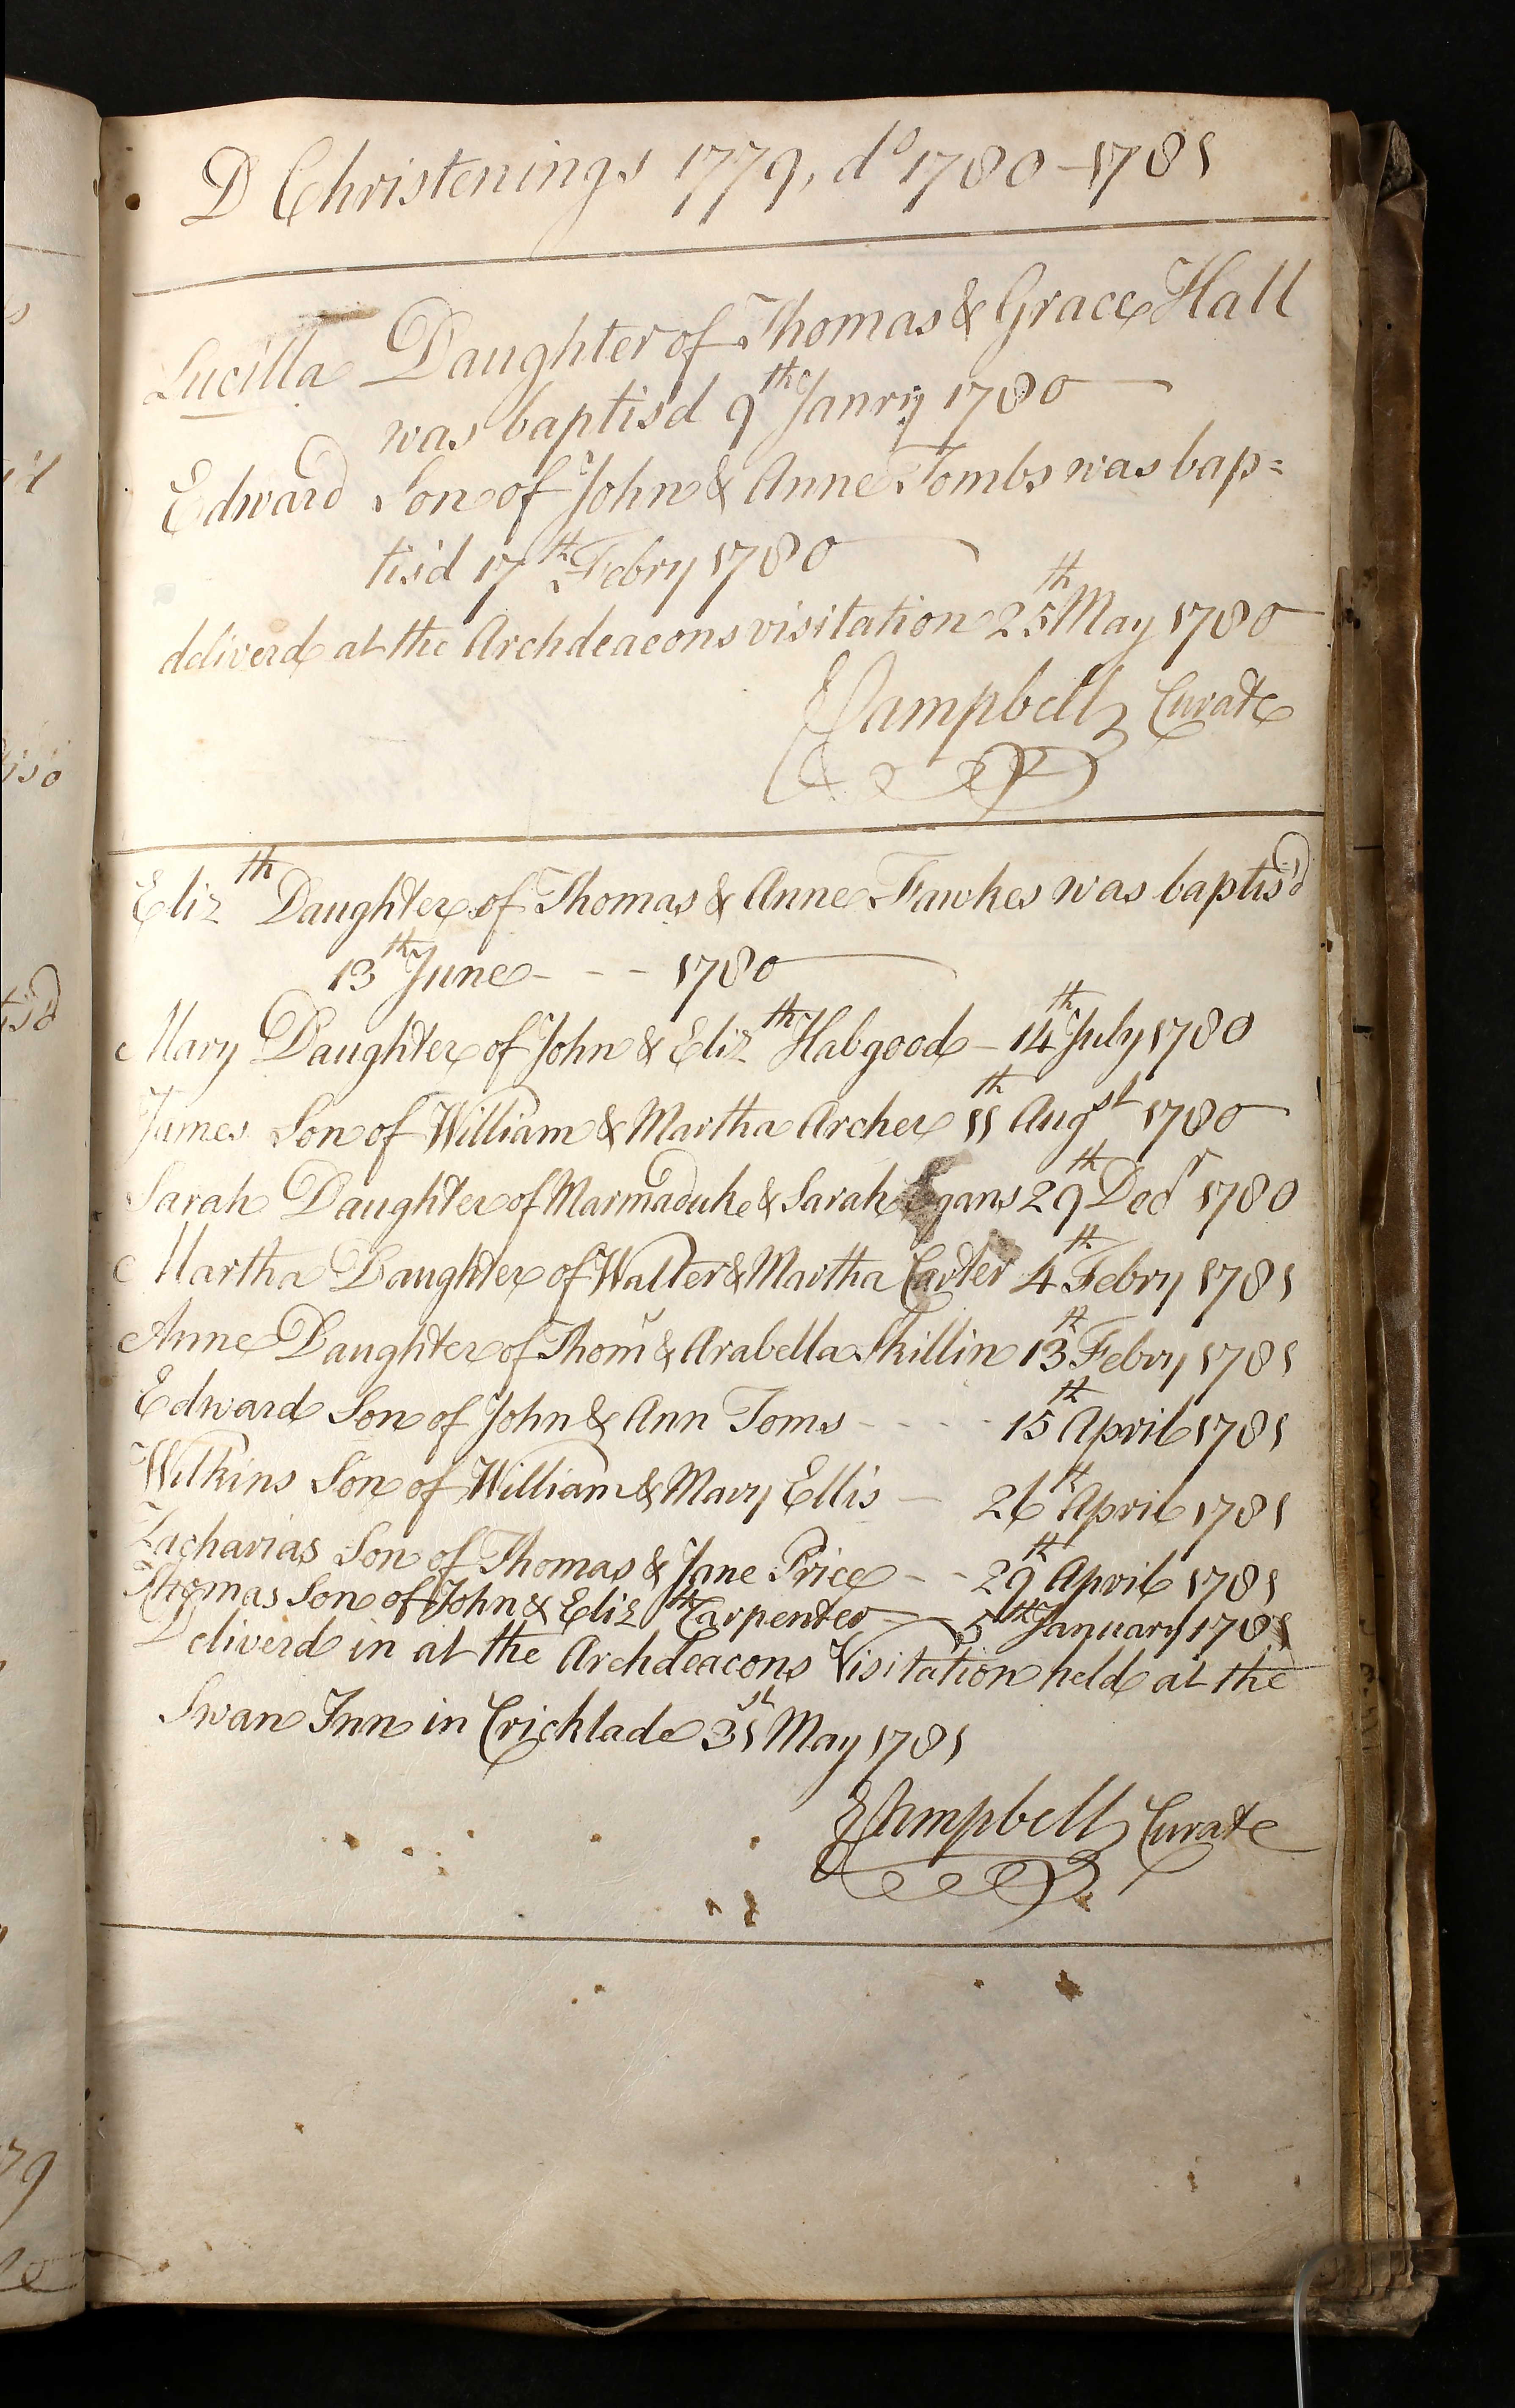 D Christenings 1779, do 1780 - 1781
Lucilla Daughter of Thomas & Grace Hall
was baptisd 9th Janry 1780
Edward Son of John & Anne Tombs was bap=
tisd 17th Febry 1780
deliverd at the Archdeacons visitation 25th May 1780
Campbell Curate
Elizth Daughter of Thomas & Anne Fawkes was baptis'd
13th June - - - 1780
Mary Daughter of John & Elizth Habgood - 14th July 1780
James Son of William & Martha Archer 11th Augst 1780
Sarah Daughter of Marmaduke & Sarah 29th Decr 1780
Martha Daughter of Walter & Martha Carter 4th Febry 1781
Anne Daughter of Thoms & Arabella Skillin 13th Febry 1781
Edward Son of John & Ann Toms - - - - 15th April 1781
Wilkins Son of William & Mary Ellis - 26th April 1781
Zacharias Son of Thomas & Jane Price - - 29th April 1781
Thomas Son of John & Elizth Carpenter - 5th January 1781
Deliverd in at the Archdeacons Visitation held at the
Swan Inn in Cricklade 31st May 1781
Campbell Curate